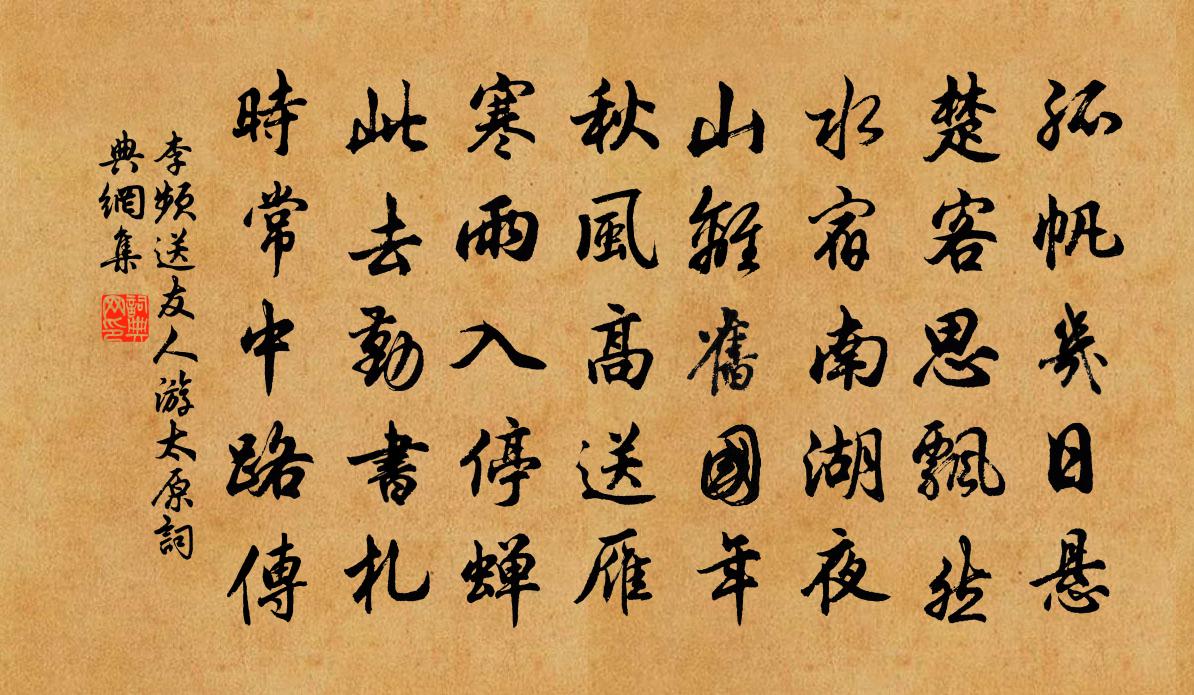 孤帆幾日悬
楚客思飄然
水宿南湖夜
山離舊國年
秋風高送雁
寒雨入停蝉
此去勤書札
時常中路傳
李频送友人游太原詞
典網集
詞典網印